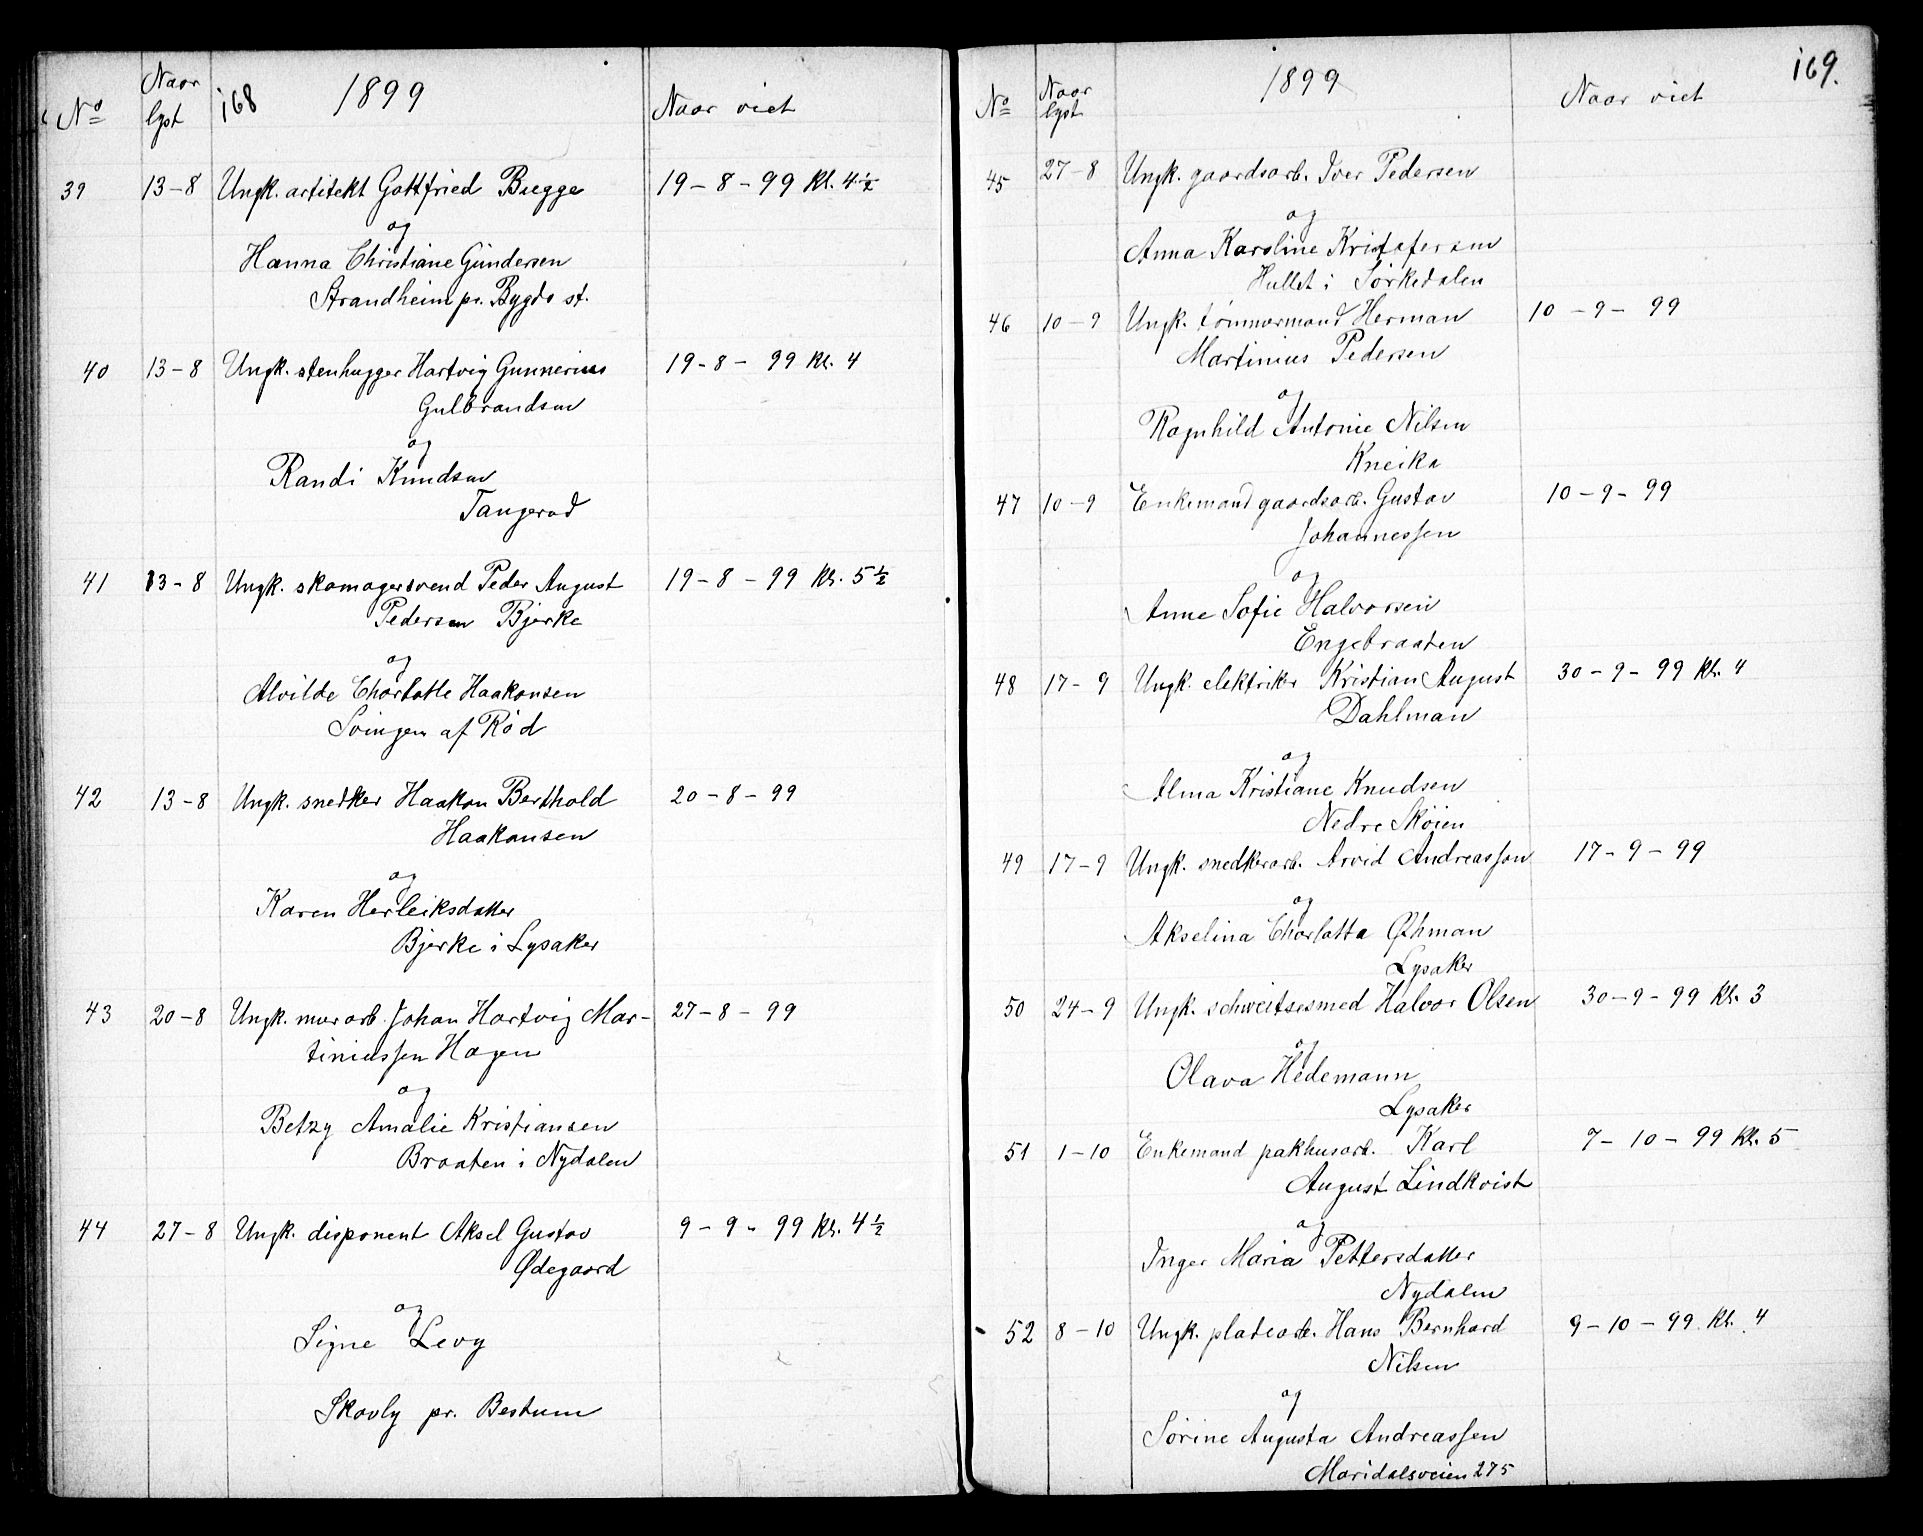 168
1899
No Naar lyst Naar viet
39 13-8 Ungk. artitekt Gottfried Bugge 19-8-99 Kl. 4 1/2
og
Hanna Christiane Gundersen
Strandheim pr. Bygdø st.
40 13-8 Ungk. stenhugger Hartvig Gunnerius 19-8-99 Kl. 4
Gulbrandsen
og
Randi Knudsen
Tangerud
41 13-8 Ungk. skomagersvend Peder August 19-8-99 Kl. 5 1/2
Pedersen Bjerke
og
Alvilde Charlotte Haakonsen
Svingen af Rød
42 13-8 Ungk. snedker Haakon Berthold 20-8-99
Haakonsen
og
Karen Herleiksdatter
Bjerke i Lysaker
43 20-8 Ungk. murarb. Johan Hartvig Mar- 27-8-99
tiniussen Hagen
og
Betzy Amalie Kristiansen
Braaten i Nydalen
44 27-8 Ungk. disponent Aksel Gustav 9-9-99 Kl. 4 1/2
Ødegaard
og
Signe Levy
Skovly pr. Bestum
169.
1899
No Naar lyst Naar viet
45 27-8 Ungk. gaardsarb. Iver Pedersen
og
Anna Karoline Kristofersen
Hullet i Sørkedalen
46 10-9 Ungk. tømmermand Herman 10-9-99
Martinius Pedersen
og
Ragnhild Antonie Nilsen
Kneika
47 10-9 Enkemand gaardsarb. Gustav 10-9-99
Johannessen
og
Anne Sofie Halvorsen
Engebraaten
48 17-9 Ungk. elektriker Kristian August 30-9-99 Kl. 4
Dahlman
og
Alma Kristiane Knudsen
Nedre Skøien
49 17-9 Ungk. snedkerarb. Arvid Andreasson 17-9-99
og
Akselina Charlotta Øhman
Lysaker
50 24-9 Ungk. schweitsesmed Halvor Olsen 30-9-99 Kl. 3
og
Olava Hedemann
Lysaker
51 1-10 Enkemand pakhusarb. Karl 7-10-99 Kl. 5
August Lindkvist
og
Inger Maria Pettersdatter
Nydalen
52 8-10 Ungk. pladearb. Hans Bernhard 9-10-99 Kl. 4
Nilsen
og
Sørine Augusta Andreassen
Maridalsveien 275